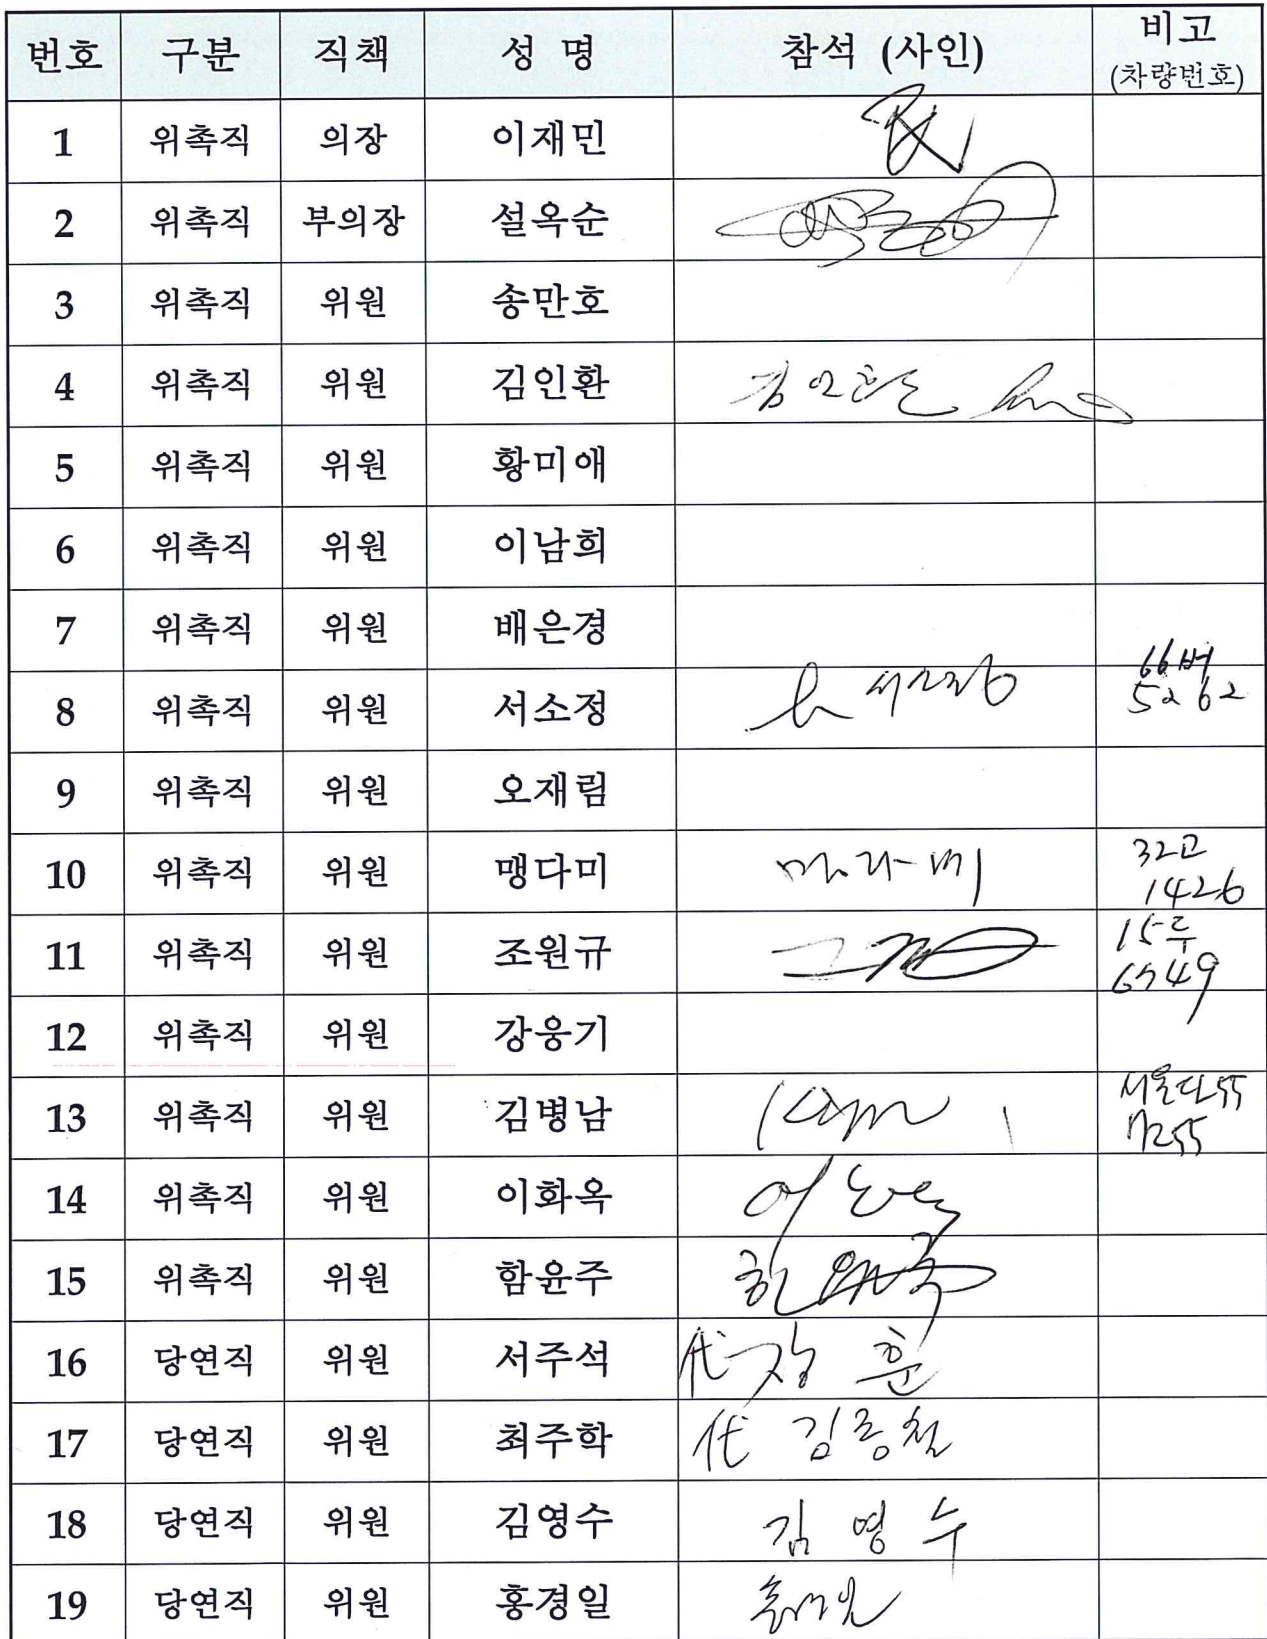 번호 구분 직책 성 명 참석 (사인) 비고
(차량번호)
1 위촉직 의장 이재민
2 위촉직 부의장 설옥순
3 위촉직 위원 송만호
4 위촉직 위원 김인환 김인환
5 위촉직 위원 황미애
6 위촉직 위원 이남희
7 위촉직 위원 배은경
8 위촉직 위원 서소정 서소정 66버
5262
9 위촉직 위원 오재림
10 위촉직 위원 맹다미 32고
1426
11 위촉직 위원 조원규 15두
6749
12 위촉직 위원 강웅기
13 위촉직 위원 김병남 Kim 서울다55
7255
14 위촉직 위원 이화옥
15 위촉직 위원 함윤주
16 당연직 위원 서주석 代 장 훈
17 당연직 위원 최주학 代 김종철
18 당연직 위원 김영수 김 영 수
19 당연직 위원 홍경일 홍경일